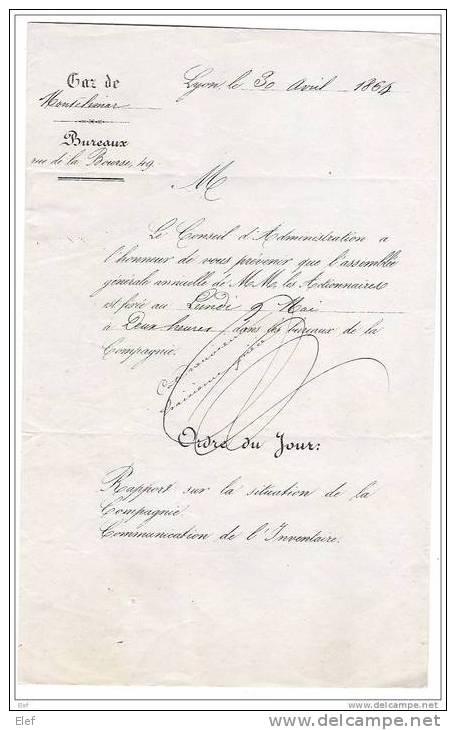 Gaz de
Montelimar
Bureaux
rue de la Bourse, 49
Lyon, le 30 Avril 1864
M
Le Conseil d'Administration a
l'honneur de vous prévenir que l'assemblée
générale annuelle de MM. les Actionnaires
est fixée au Lundi 9 Mai
à Deux heures, dans les bureaux de la
Compagnie.
Ordre du Jour:
Rapport sur la situation de la
Compagnie.
Communication de l'Inventaire.
Elef
Elef
www.delcampe.net